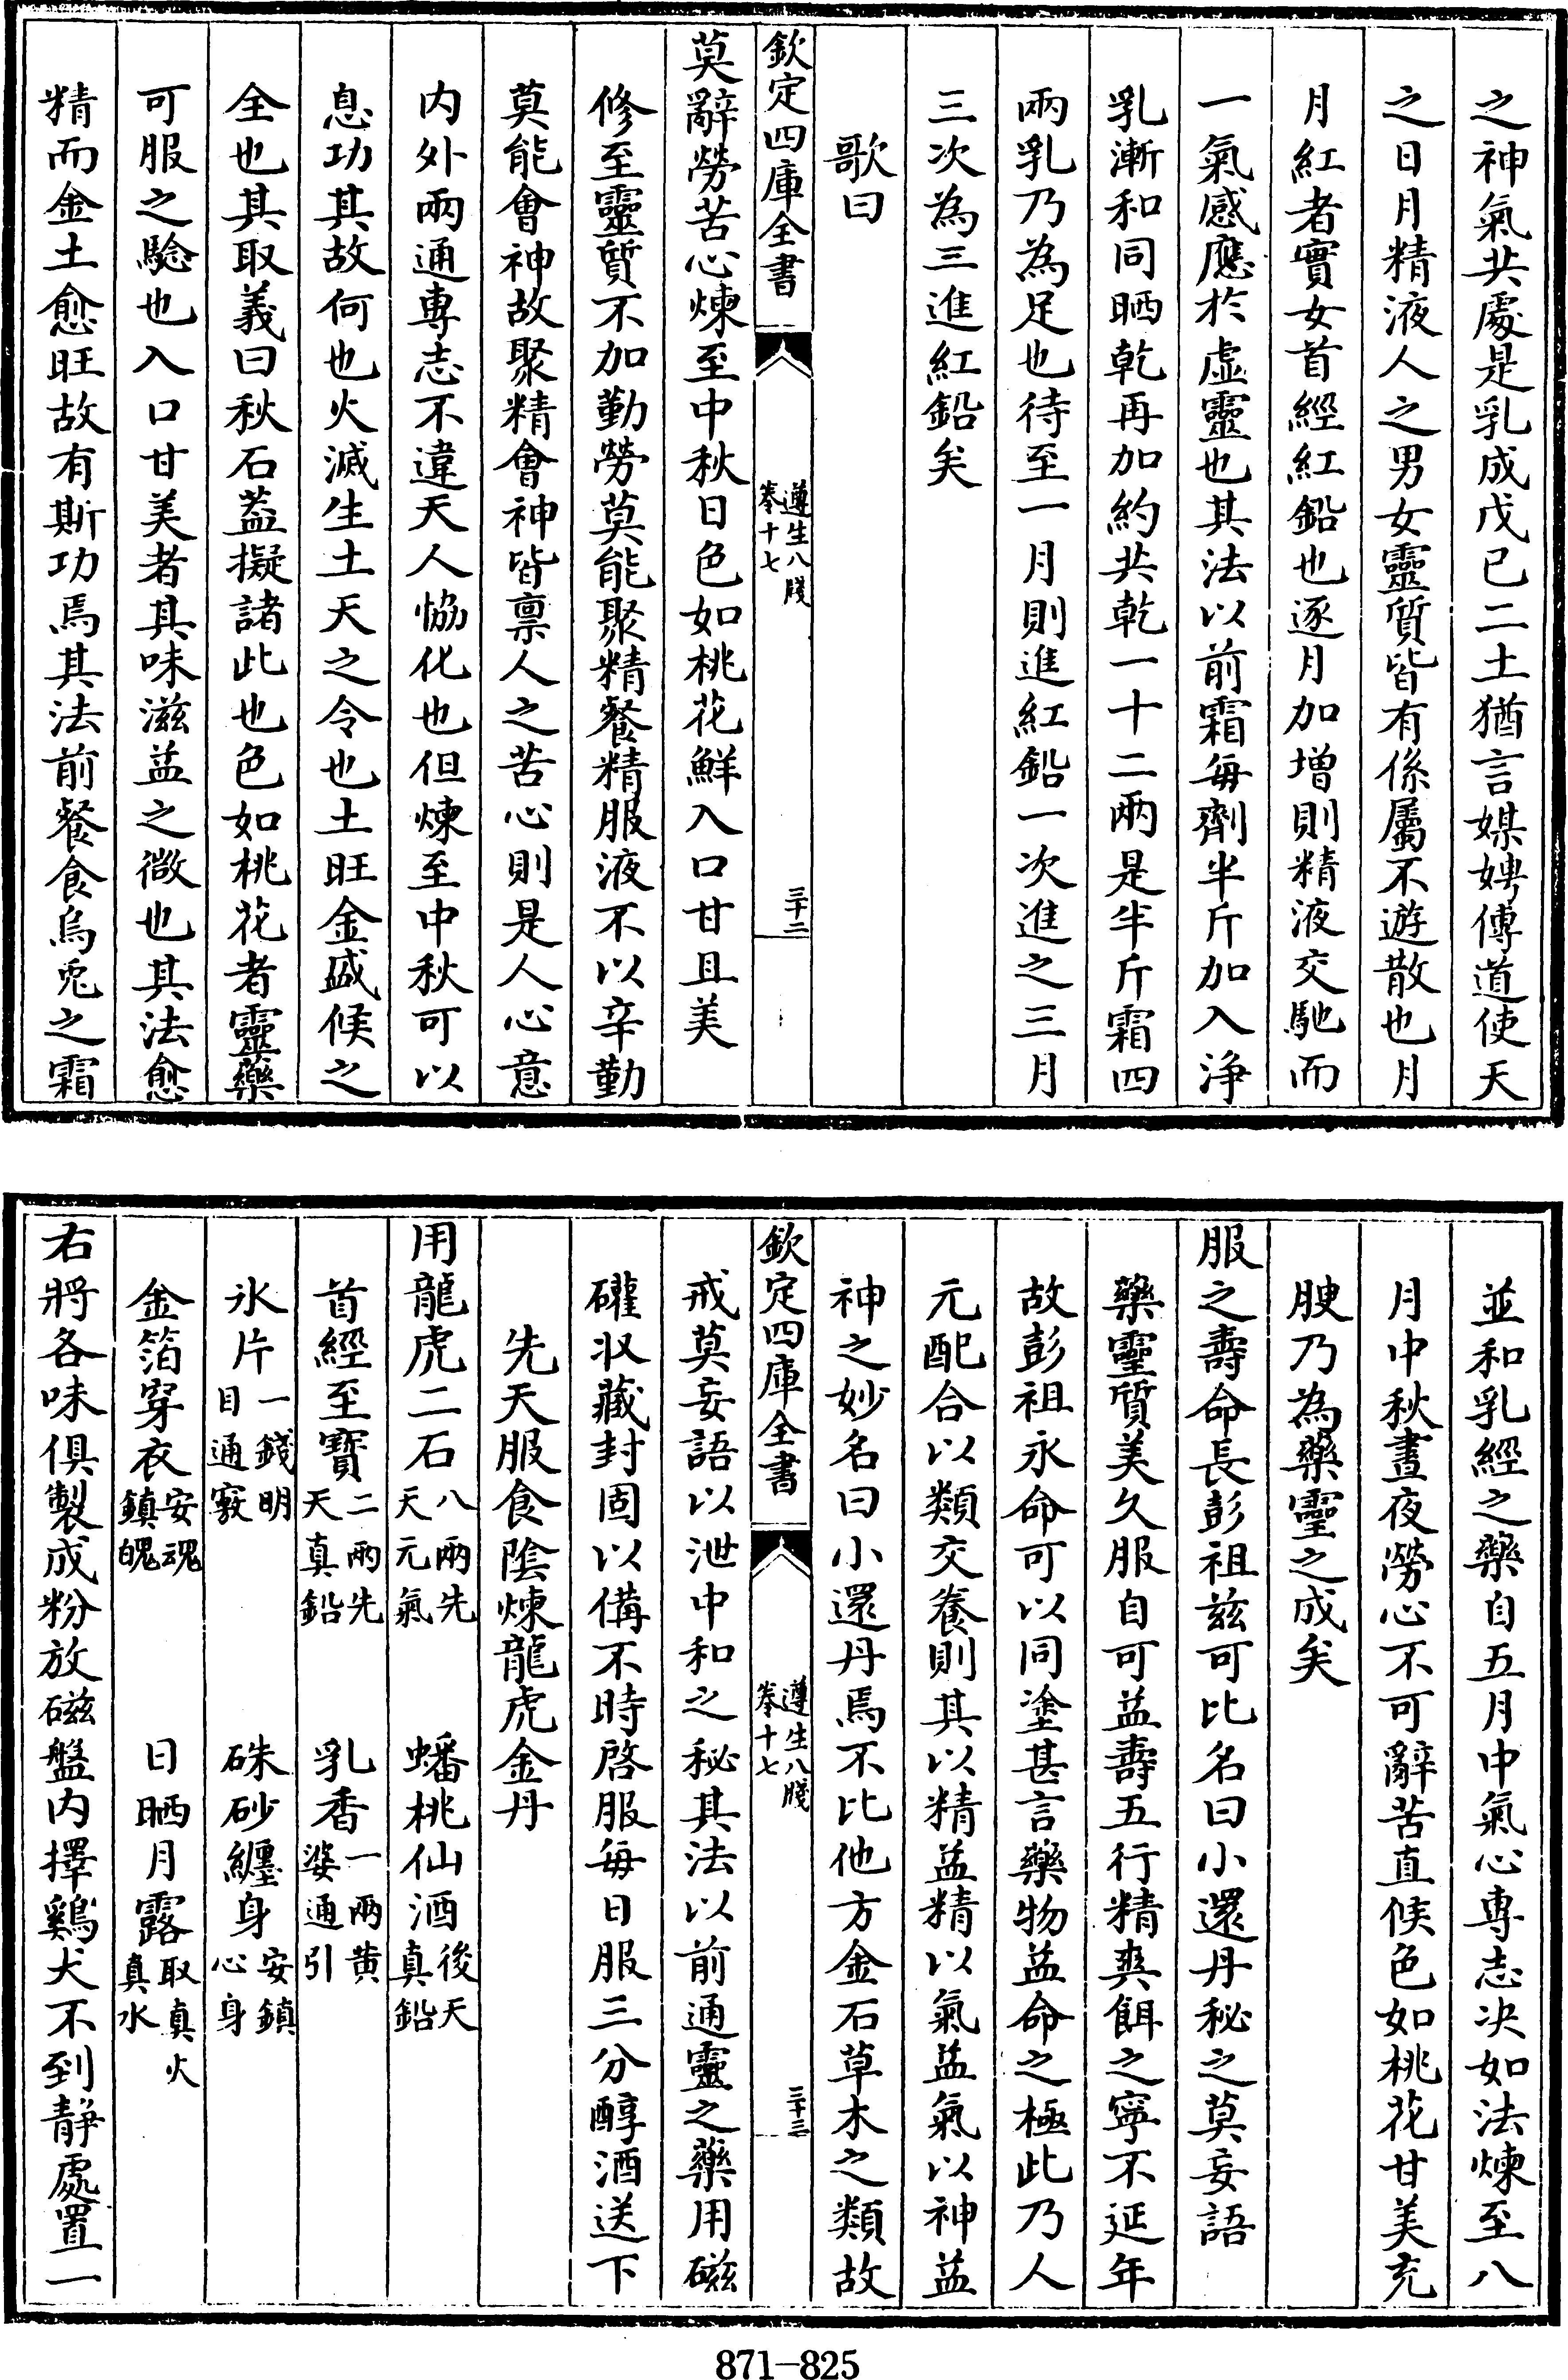 之神氣共處是乳成戊已二土猶言媒娉傳道使天
之日月精液人之男女靈質皆有係屬不遊散也月
月紅者實女首經紅鉛也逐月加增則精液交馳而
一氣感應於虛靈也其法以前霜每劑半斤加入淨
乳漸和同晒乾再加約共乾一十二兩是半斤霜四
兩乳乃為足也待至一月則進紅鉛一次進之三月
三次為三進紅鉛矣
歌曰
欽定四庫全書
遵生八牋
卷十七
三十二
莫辭勞苦心煉至中秋日色如桃花鮮入口甘且美
修至靈質不加勤勞莫能聚精餐精服液不以辛勤
莫能會神故聚精會神皆禀人之苦心則是人心意
内外兩通專志不違天人恊化也但煉至中秋可以
息功其故何也火滅生土天之令也土旺金盛候之
全也其取義曰秋石葢擬諸此也色如桃花者靈藥
可服之驗也入口甘美者其味滋益之微也其法愈
精而金土愈旺故有斯功焉其法前餐食烏兎之霜
並和乳經之藥自五月中氣心專志决如法煉至八
月中秋晝夜勞心不可辭苦直候色如桃花甘美充
腴乃為藥靈之成矣
服之壽命長彭祖兹可比名曰小還丹秘之莫妄語
藥靈質美久服自可益壽五行精㸑餌之寧不延年
故彭祖永命可以同塗甚言藥物益命之極此乃人
元配合以類交養則其以精益精以氣益氣以神益
神之妙名曰小還丹焉不比他方金石草木之類故
欽定四庫全書
遵生八牋
卷十七
三十三
戒莫妄語以泄中和之秘其法以前通靈之藥用磁
礶收藏封固以備不時啓服每日服三分醇酒送下
先天服食陰煉龍虎金丹
用龍虎二石八兩先天元氣 蟠桃仙酒後天真鉛
首經至寶二兩先天真鉛 乳香一兩黄婆通引
氷片一錢明目通竅 硃砂纏身安鎮心身
金箔穿衣安魂鎮魄 日晒月露取真火真水
右將各味俱製成粉放磁盤内擇鷄犬不到静處置一
871-825